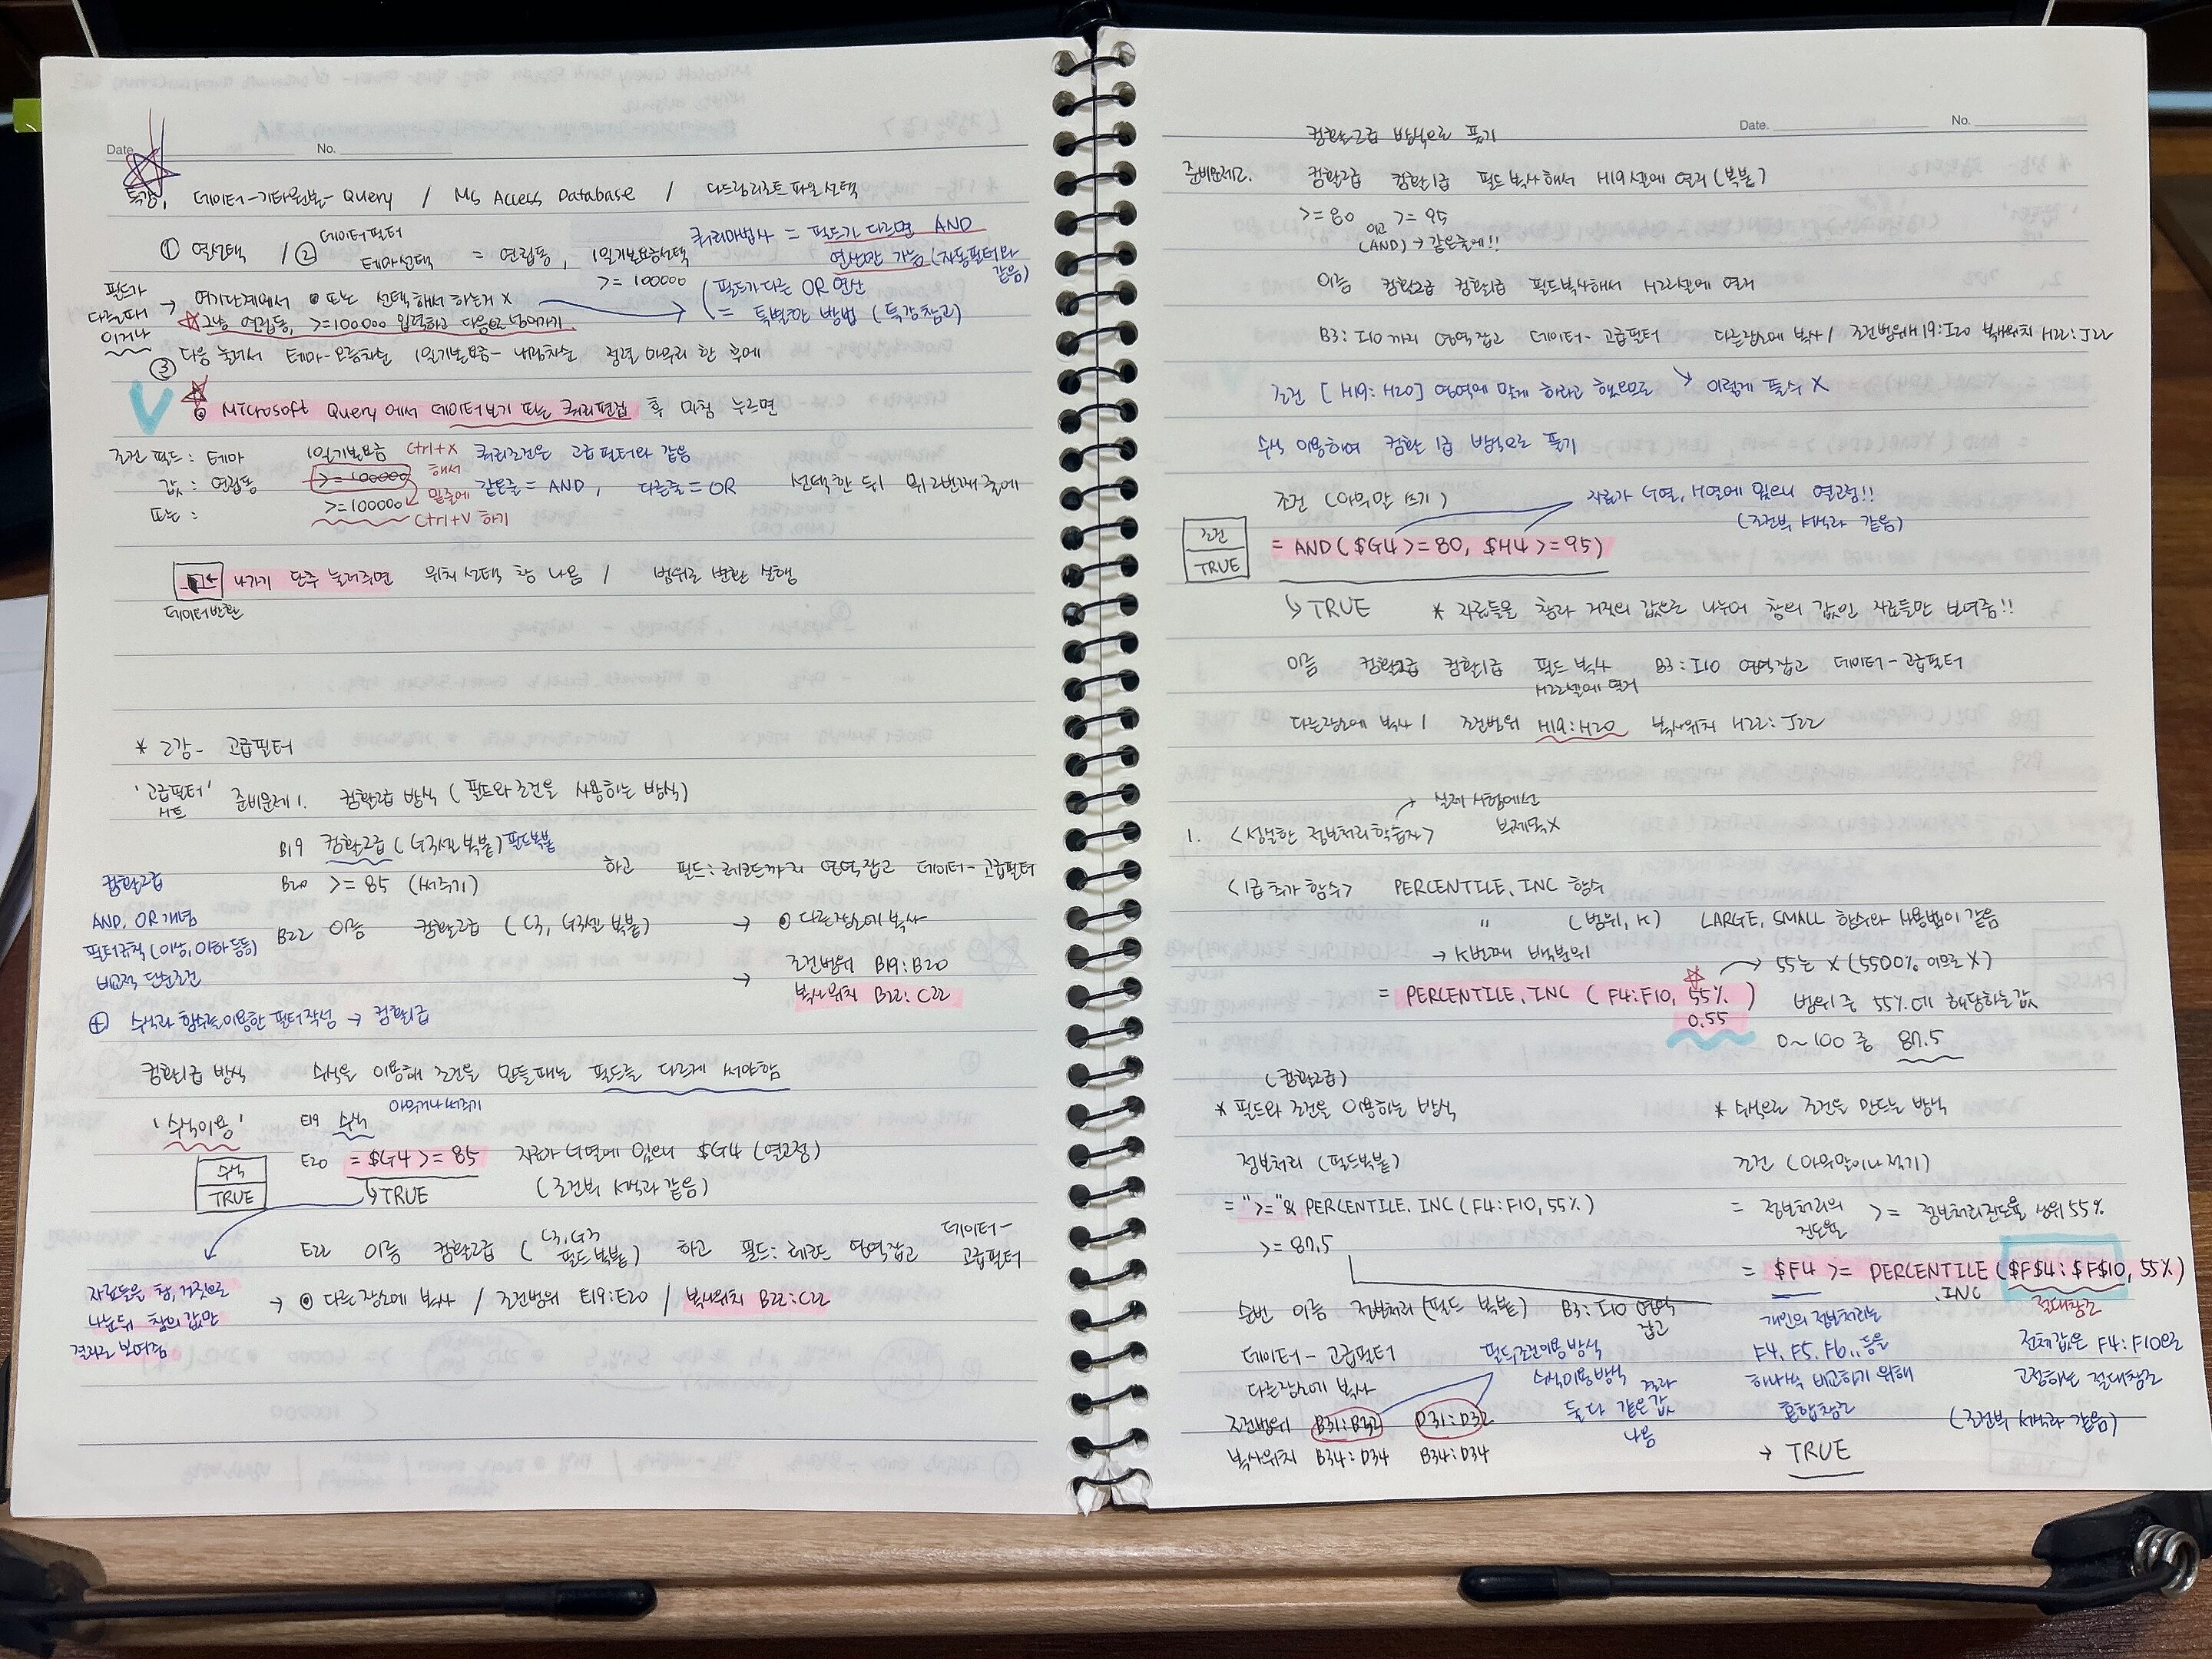 Date. No.
특강. 데이터-기타원본-Query / MS Access Database / 다드림리조트파일선택
① 열선택 / ② 데이터필터 테마선택 = 연립동, 1일기본요금선택 >= 100000
쿼리마법사 = 필드가 다르면 AND
연산만 가능 (자동필터와 같음)
필드가 다른때 이거나
→ 여기단계에서 ⊙ 또는 선택해서 하는거 X
(필드가 다른 OR 연산
= 특별한 방법 (특강참고)
☆그냥 연립동, >=100000 입력하고 다음으로 넘어가기
③ 다음 눌러서 테마-오름차순 1일기본요금-내림차순 정렬 마무리 한 후에
☆
V ⊙ Microsoft Query에서 데이터보기 또는 쿼리편집 후 마침 누르면
조건 필드 : 테마 1일기본요금 Ctrl+X 해서 쿼리조건은 고급필터와 같음
값 : 연립동 >=100000 밑줄에 같은줄 = AND, 다른줄 = OR 선택한 뒤 뭐 2번째 줄에
또는 : >=100000 Ctrl+V 하기
나가기 단추 눌러주면 위치선택 창 나옴 / 범위로 변환 실행
데이터반환
* 2강- 고급필터
'고급필터' 시트 준비문제1. 컴활2급 방식 (필드와 조건을 사용하는 방식)
B19 컴활2급 (G3셀 복붙) 필드복붙
B20 >= 85 (써주기) 하고 필드:레코드까지 영역잡고 데이터-고급필터
B22 이름 컴활2급 (C3, G3셀 복붙) → ⊙ 다른장소에 복사
→ 조건범위 B19:B20
복사위치 B22:C22
컴활2급
AND, OR 개념
필터규칙(이상, 이하 등등)
비교적 단순조건
⊕ 수식과 함수를 이용한 필터작성 → 컴활1급
컴활1급 방식 수식을 이용해 조건을 만들때는 필드를 다르게 써야함
'수식이용' E19 수식 아무거나 써주기
E20 =$G4>=85 자료가 G열에 있으니 $G4 (열고정)
수식
TRUE
↳TRUE (조건부 서식과 같음)
E22 이름 컴활2급 (C3, G3 필드복붙) 하고 필드:레코드 영역잡고 데이터-고급필터
→ ⊙ 다른장소에 복사 / 조건범위 E19:E20 / 복사위치 B22:C22
자료들을 참, 거짓으로
나눈뒤 참의 값만
결과로 보여줌
Date. No.
컴활2급 방식으로 풀기
준비문제2. 컴활2급 컴활1급 필드복사해서 H19셀에 열기 (복붙)
>=80 이고 >=95
(AND) → 같은줄에!!
이름 컴활2급 컴활1급 필드복사해서 H22셀에 열기
B3:I10까지 영역잡고 데이터-고급필터 다른장소에 복사 / 조건범위 H19:I20 복사위치 H22:J22
조건 [H19:H20] 영역에 맞게 하라고 했으므로 ↘ 이렇게 풀수 X
수식 이용하여 컴활 1급 방식으로 풀기
조건 (아무말 쓰기) 자료가 G열, H열에 있으니 열고정!!
(조건부 서식과 같음)
조건
TRUE
= AND($G4>=80, $H4>=95)
↳TRUE * 자료들을 참과 거짓의 값으로 나누어 참의 값인 자료들만 보여줌!!
이름 컴활2급 컴활1급 필드 복사 H22셀에 열기 B3:I10 영역잡고 데이터-고급필터
다른장소에 복사 / 조건범위 H19:H20 복사위치 H22:J22
→ 실제 시험에선 문제목X
1. <성실한 정보처리학습자>
<1급추가 함수> PERCENTILE.INC 함수
" (범위, K) LARGE, SMALL 함수와 사용법이 같음
→ K번째 백분위
☆ → 55는 X (5500% 이므로 X)
= PERCENTILE.INC (F4:F10, 55%) 범위 중 55%에 해당하는값
0.55
0~100 중 87.5
(컴활2급)
* 필드와 조건을 이용하는 방식 * 수식으로 조건을 만드는 방식
정보처리 (필드복붙) 조건 (아무말이나 적기)
= ">="& PERCENTILE.INC(F4:F10,55%) = 정보처리의 진도율 >= 정보처리진도율 상위 55%
>= 87.5
= $F4 >= PERCENTILE.INC ($F$4:$F$10, 55%)
절대참조
순번 이름 정보처리 (필드 복붙) B3:I10 영역 잡고
데이터-고급필터
다른장소에 복사
조건범위 B31:B32 D31:D32
복사위치 B34:D34 B34:D34
필드조건이용방식
수식이용방식 결과
둘 다 같은 값 나옴
개인의 정보처리는
F4, F5, F6.. 등을
하나씩 비교하기 위해
혼합참조
→ TRUE
전체값은 F4:F10으로
고정하는 절대참조
(조건부 서식과 같음)